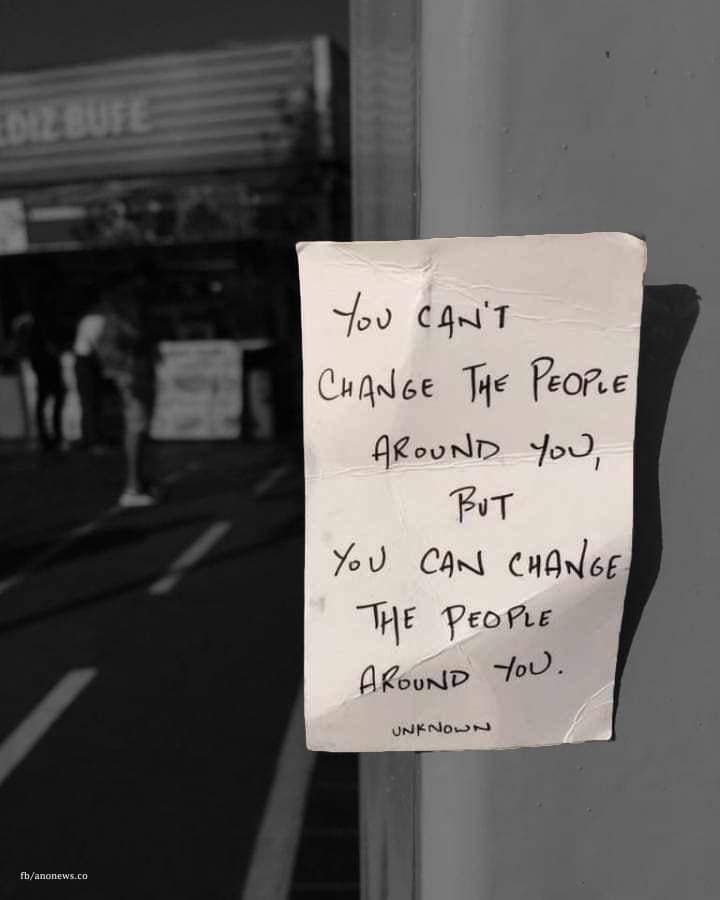 LDIZ BUFE
YOU CAN'T
CHANGE THE PEOPLE
AROUND YOU,
BUT
YOU CAN CHANGE
THE PEOPLE
AROUND YOU.
UNKNOWN
fb/anonews.co